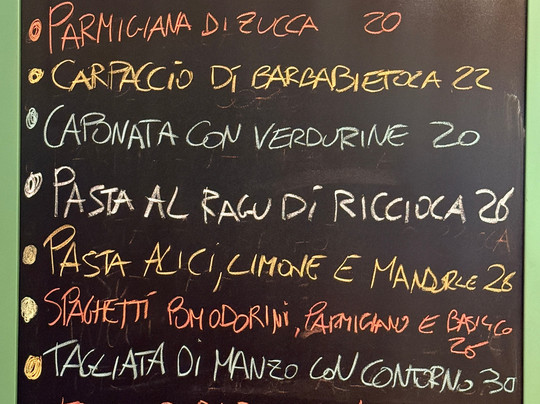 PARMIGIANA DI ZUCCA 20
CARPACCIO DI BARBABIETOLA 22
CAPONATA CON VERDURINE 20
PASTA AL RAGU DI RICCIOLA 26
PASTA ALICI, LIMONE E MANDORLE 26
SPAGHETTI POMODORINI, PARMIGIANO E BASILICO
26
TAGLIATA DI MANZO CON CONTORNO 30